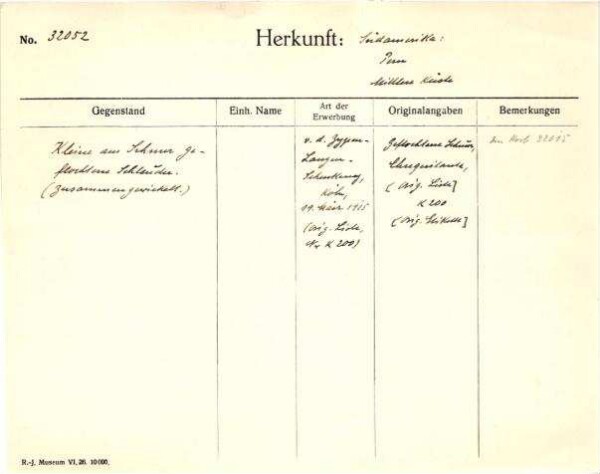 No. 32052
Herkunft: Südamerika:
Peru
Mittlere Küste
Gegenstand
Einh. Name
Art der
Erwerbung
Originalangaben
Bemerkungen
Kleine aus Schnur ge-
flochtene Schleuder.
(Zusammengewickelt.)
v. d. Zypen-
Langen-
Schenkung,
Köln,
1915
(Orig. Liste,
Nr K 200)
Geflochtene Schnur,
(Orig. Liste]
K 200
(Orig. Etikette]
R.-J. Museum VI. 26. 10000.